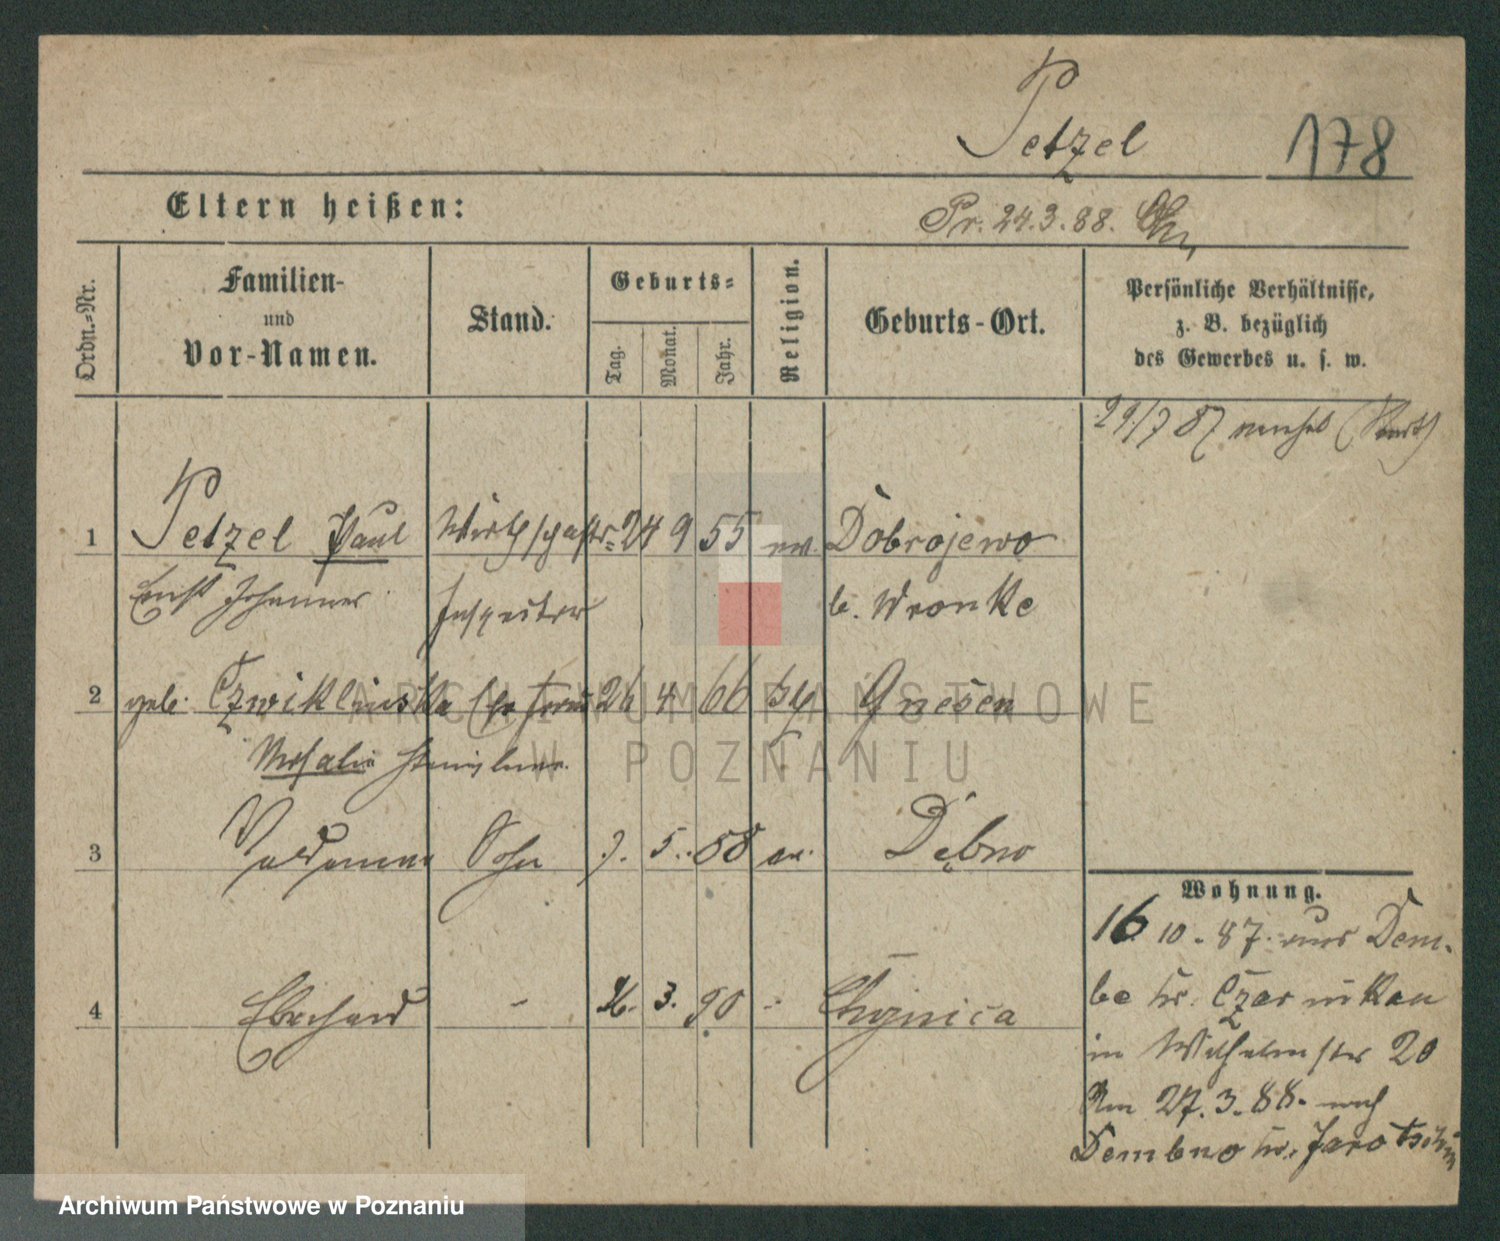 Petzel 178
Eltern heißen:
Pr. 24.3.88.
Ordn.-Nr.
Familien-
und
Vor-Namen.
Stand.
Geburts-
Tag.
Monat.
Jahr.
Religion.
Geburts-Ort.
Persönliche Verhältnisse,
z. B. bezüglich
des Gewerbes u. s. w.
29/7 87
1 Petzel Paul Wirthschafts- 24 9 55 ev. Dobrojewo
Ernst Johannes Inspector b. Wronke
2 geb. Czwiklinska Ehefrau 26 4 66 Gnesen
Rosalie
3 Sohn 7. 5. 88 ev. Dębno
4 Eberhard - 3. 90 - Chojnica
Wohnung.
16 10. 87. aus Dem-
be Kr. Czarnikau
in Wilhelmstr 20
Am 27.3.88. nach
Dembno Kr. Jarotschin
ARCHIWUM PAŃSTWOWE
W POZNANIU
Archiwum Państwowe w Poznaniu